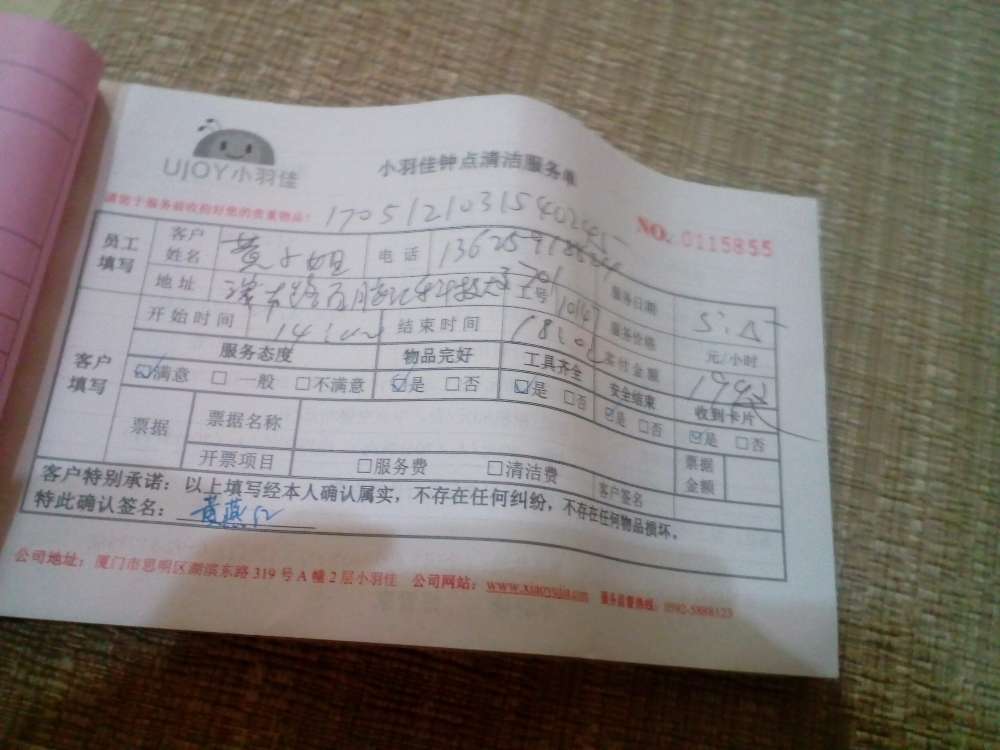 UJOY小羽佳
小羽佳钟点清洁服务单
请您于服务前收拾好您的贵重物品!
170512103154024
NO. 0115855
员工填写 客户姓名 黄小姐 电话 服务日期
地址 工号 服务价格 元/小时
开始时间 14:00 结束时间 18:00 实付金额
客户填写 服务态度 物品完好 工具齐全 安全结束 收到卡片
☑满意 □一般 □不满意 ☑是 □否 ☑是 □否 ☑是 □否 ☑是 □否
票据 票据名称 票据金额
开票项目 □服务费 □清洁费 客户签名
客户特别承诺:以上填写经本人确认属实,不存在任何纠纷,不存在任何物品损坏。
特此确认签名:
公司地址:厦门市思明区湖滨东路319号A幢2层小羽佳 公司网站:www.xiaoyujia.com 服务监督热线:0592-5888123